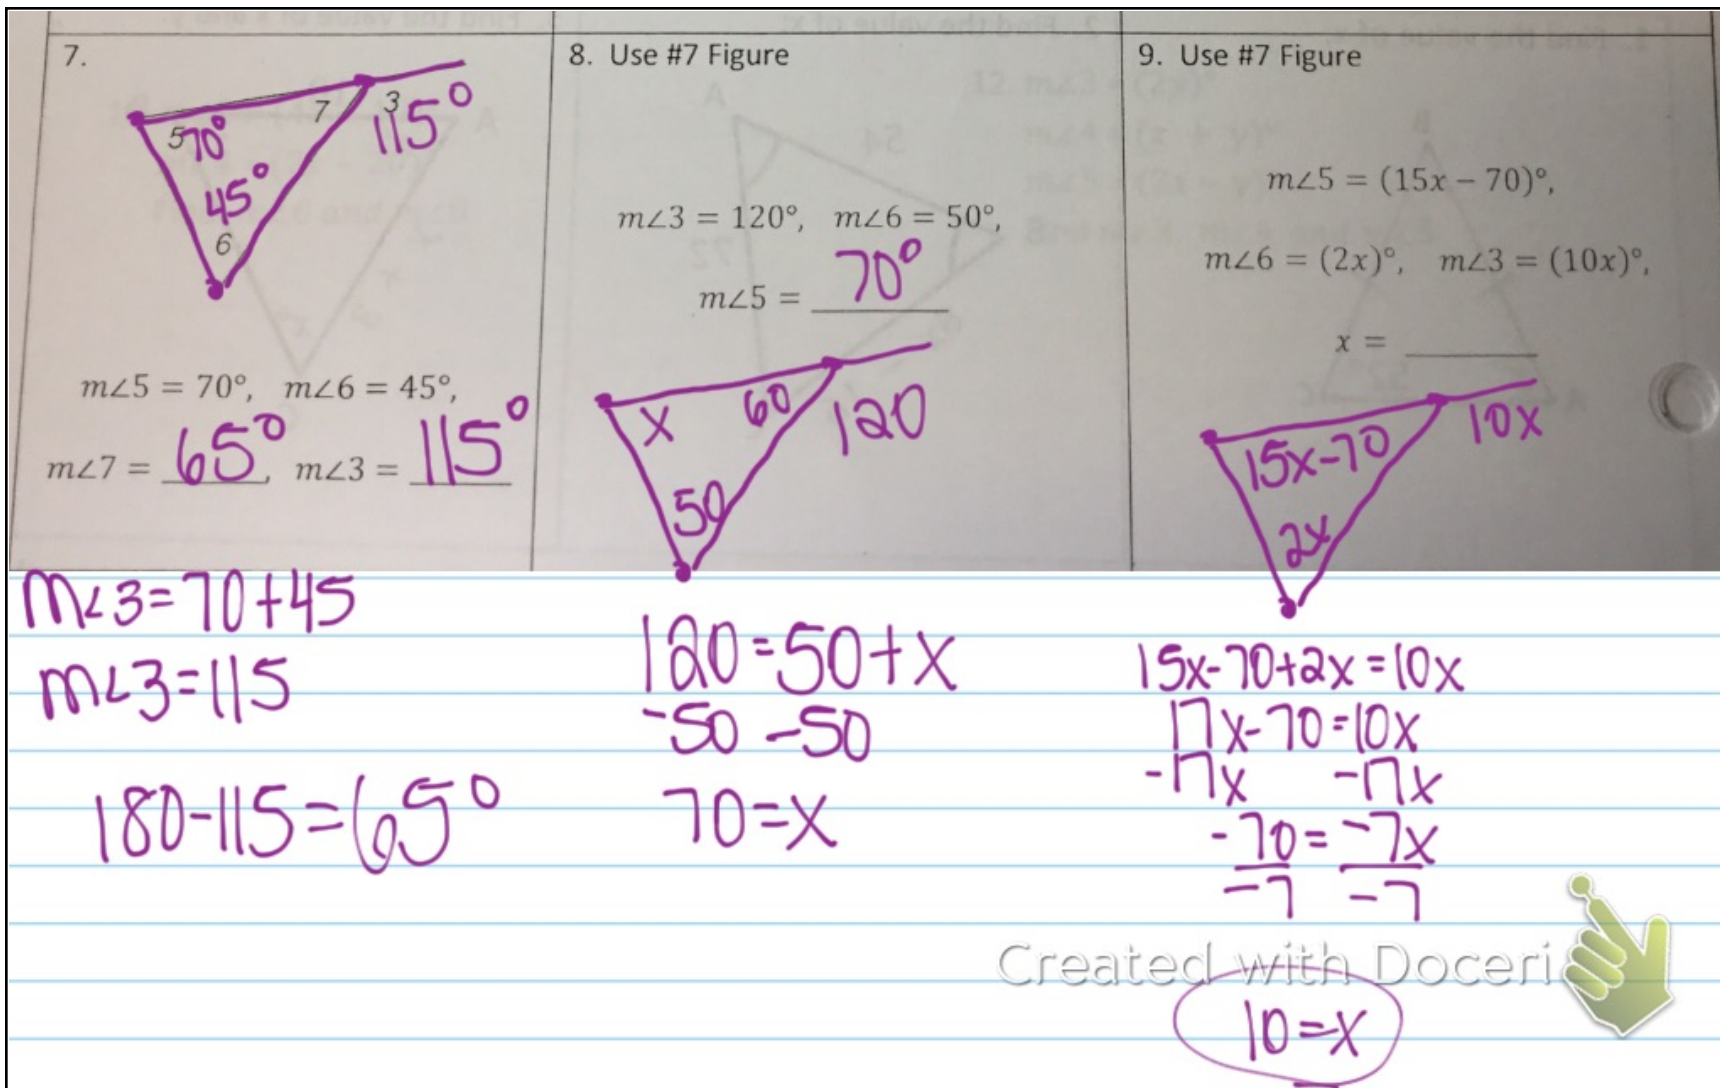 7.
7 3 115°
5 70°
45°
6
m∠5 = 70°, m∠6 = 45°,
m∠7 = 65°, m∠3 = 115°
m∠3=70+45
m∠3=115
180-115=65°
8. Use #7 Figure
m∠3 = 120°, m∠6 = 50°,
m∠5 = 70°
x 60 120
50
120=50+x
-50 -50
70=x
9. Use #7 Figure
m∠5 = (15x – 70)°,
m∠6 = (2x)°, m∠3 = (10x)°,
x = ______
15x-70 10x
2x
15x-70+2x=10x
17x-70=10x
-17x -17x
-70=-7x
-7 -7
10=x
Created with Doceri